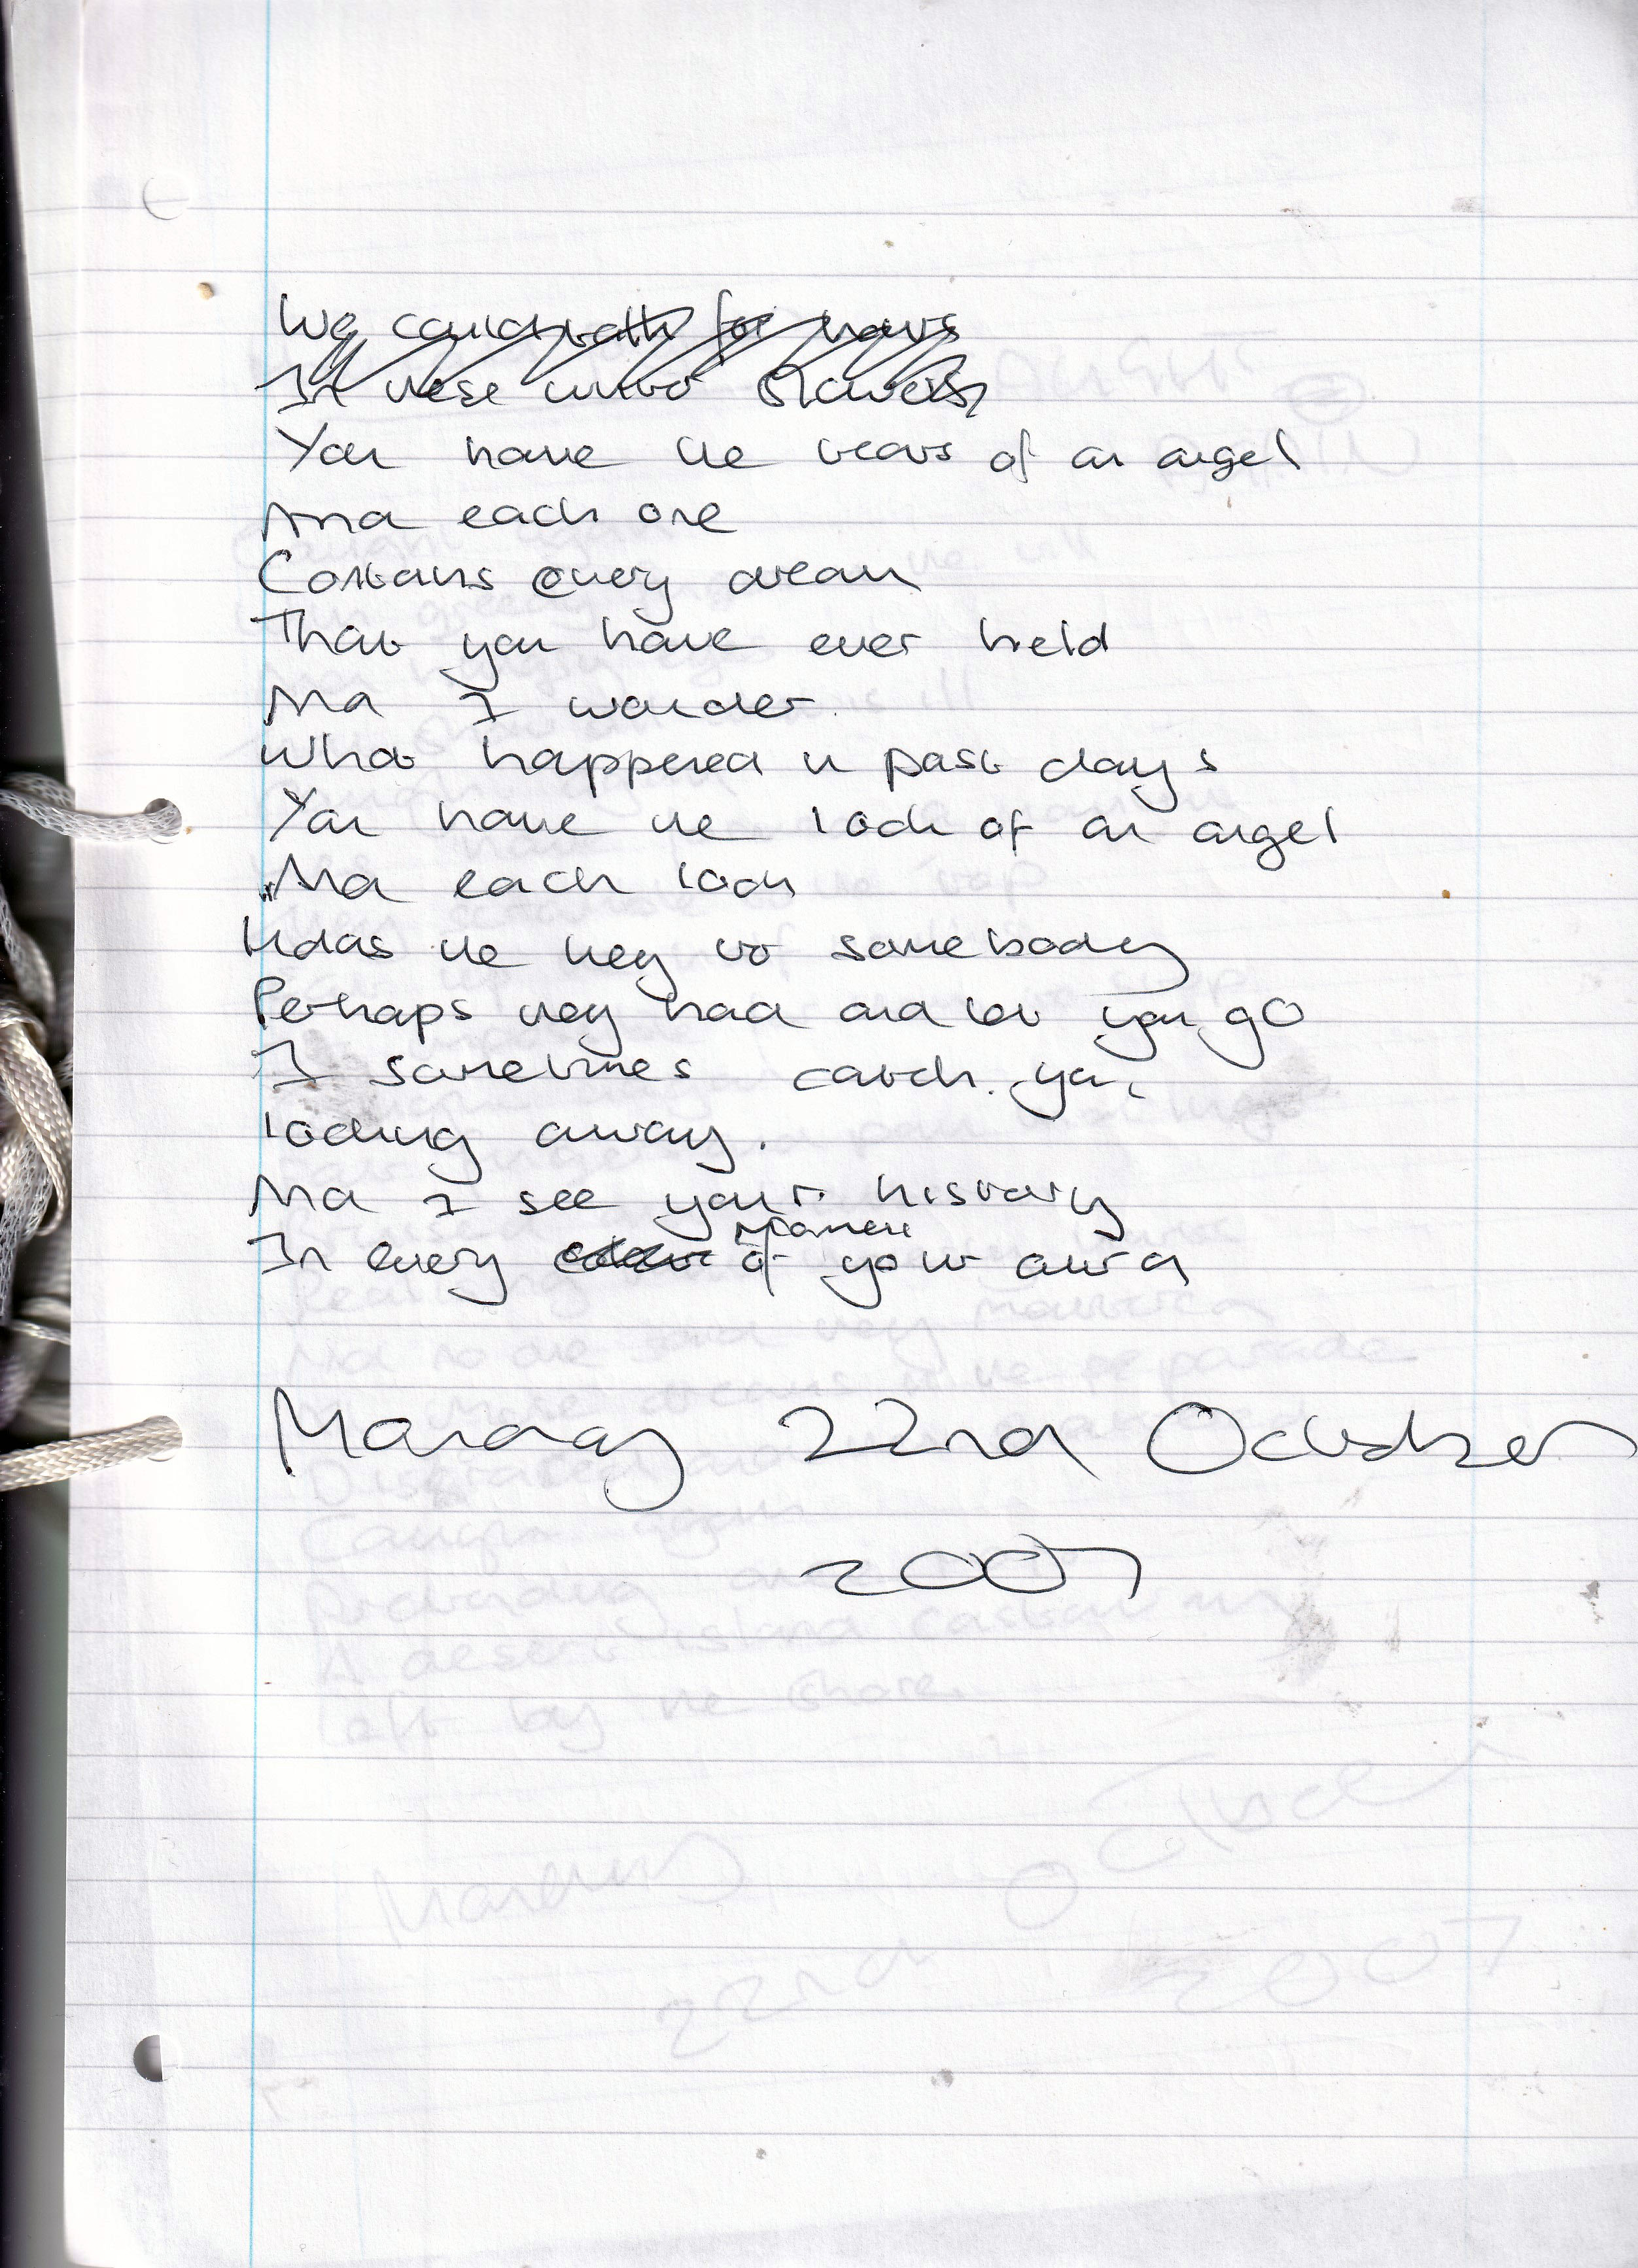 We could talk for hours
In these winter showers
You have the tears of an angel
And each one
Contains every dream
That you have ever held
And I wonder
What happened in past days
You have the look of an angel
And each look
Holds the key to somebody
Perhaps they had and let you go
I sometimes catch you
looking away.
And I see your history
In every moment of your aura
Monday 22nd October
2007